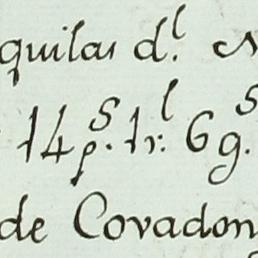 quilas d.l
14 p.s 1 r.l 6 g.s
de Covadon